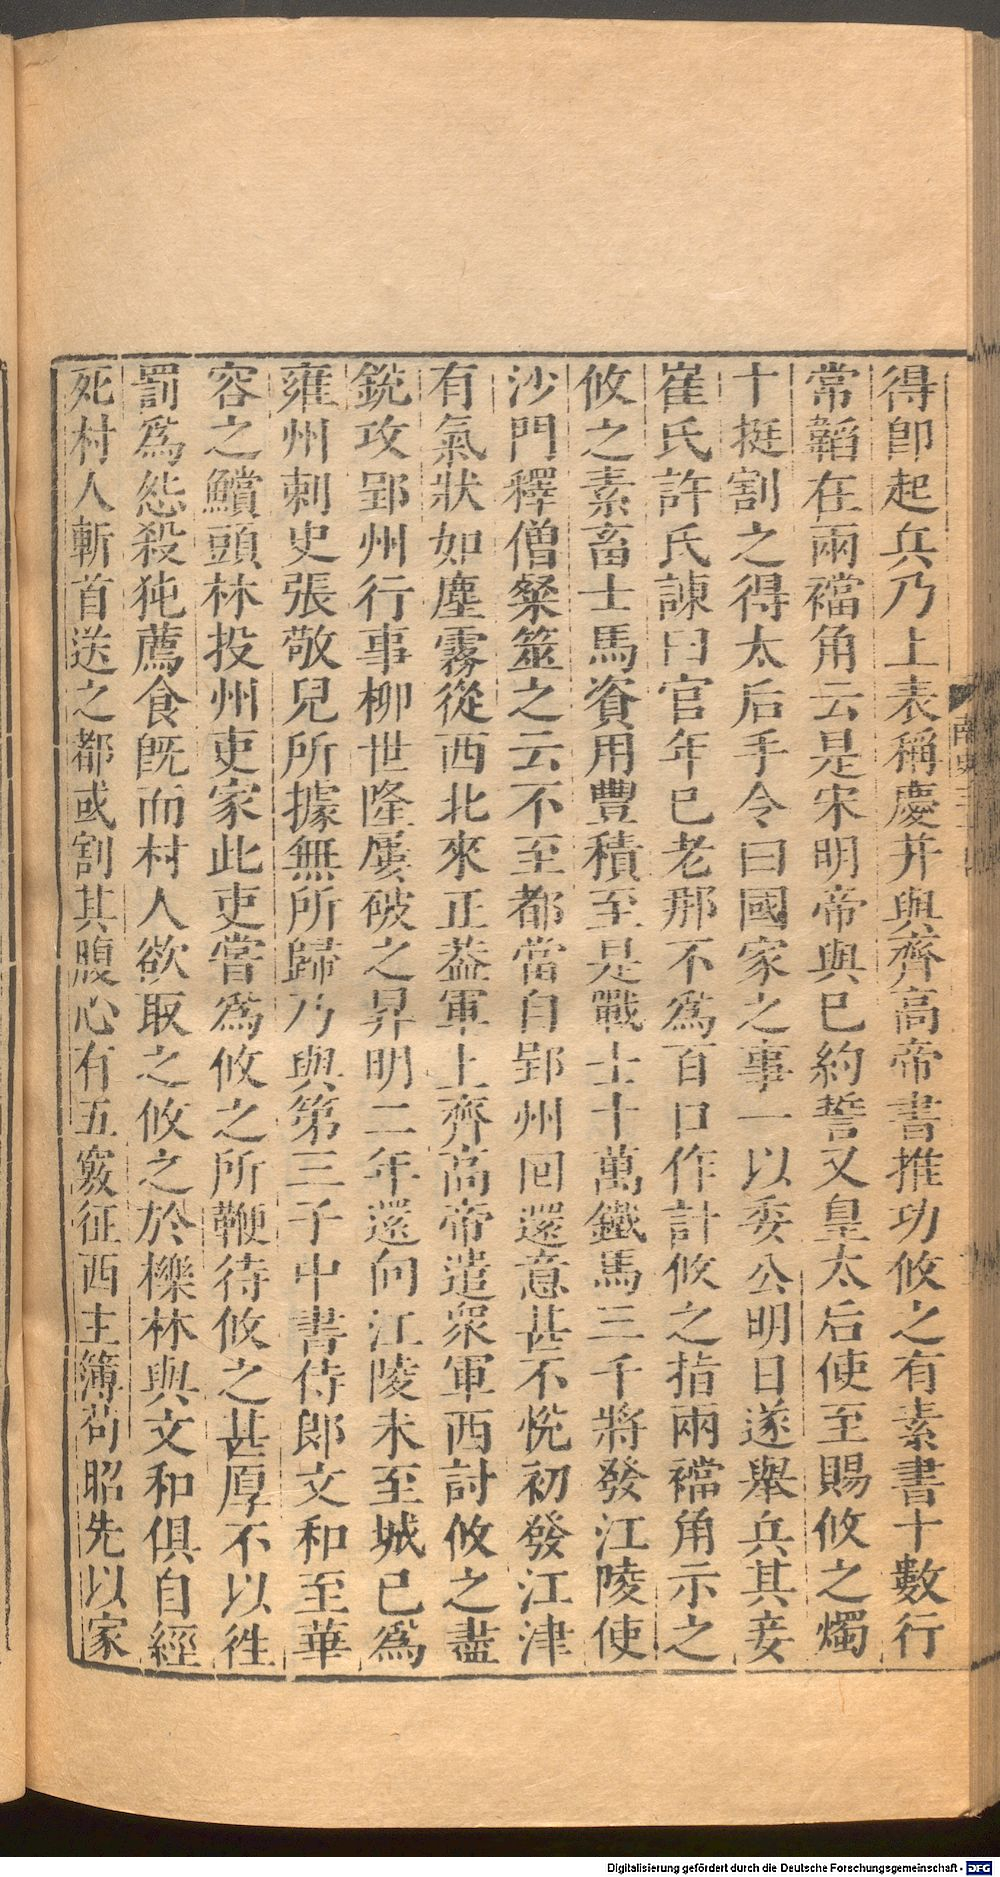 得卽起兵乃上表稱慶幷與齊高帝書推功攸之有素書十數行
常韜在兩襠角云是宋明帝與已約誓又皇太后使至賜攸之燭
十挺割之得太后手令曰國家之事一以委公明日遂舉兵其妾
崔氏許氏諫曰官年已老那不爲百口作計攸之指兩襠角示之
攸之素畜士馬資用豐積至是戰士十萬鐵馬三千將發江陵使
沙門釋僧粲筮之云不至都當自郢州回還意甚不悅初發江津
有氣狀如塵霧從西北來正蓋軍上齊高帝遣衆軍西討攸之盡
銳攻郢州行事柳世隆屢破之昇明二年還向江陵未至城已爲
雍州刺史張敬兒所據無所歸乃與第三子中書侍郎文和至華
容之鱨頭林投州吏家此吏嘗爲攸之所鞭待攸之甚厚不以徃
罰爲怨殺㹠薦食旣而村人欲取之攸之於櫟林與文和俱自經
死村人斬首送之都或割其腹心有五竅征西主簿苟昭先以家
南史三
Digitalisierung gefördert durch die Deutsche Forschungsgemeinschaft - DFG